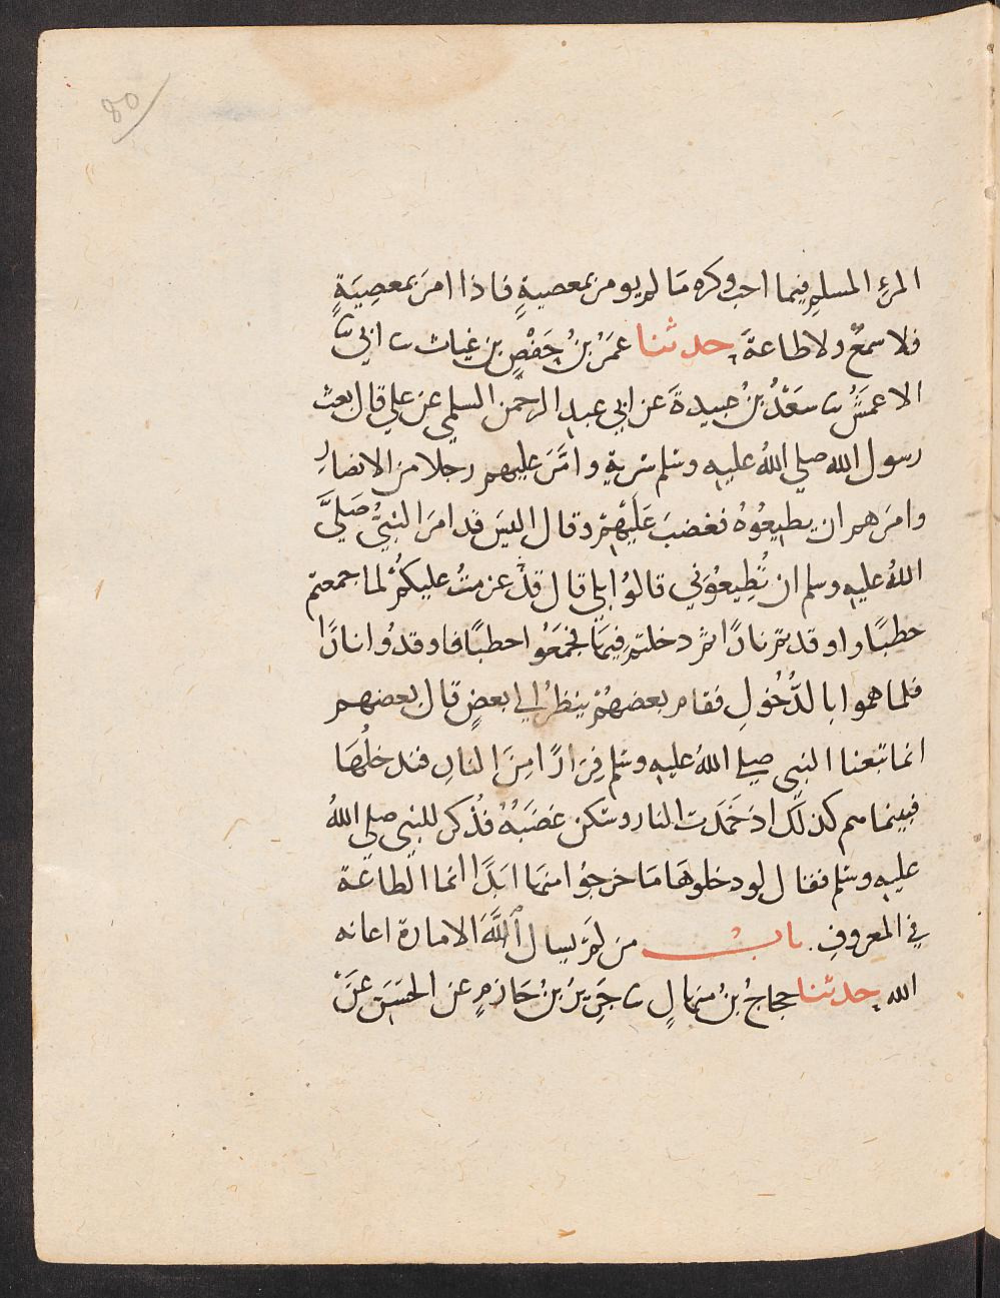 80
المرءِ المسلمِ فيما احب وكره مَا لم يومر بمعصيةٍ فاذا امرَ بمعصِيَةٍ
فلا سمعٌ ولا طاعةَ حدثنا عمَرُ بنُ حَفْصٍ بن غياث ثنا ابي ثنا
الاعمَشُ ثنا سَعْدُ بنُ عبيدةَ عن ابي عبد الرحمن السلمي عن علي قال بعث
رسول الله صلي اللهُ عليه وسلم سرية وامَّرَ عليهم رجلا من الانصارِ
وامرَهم ان يطيعُوهُ فغضبَ عَلَيْهِمْ وقال اليسَ قد امرَ النبيُّ صَلَّي
اللهُ عليه وسلم ان تُطِيعُوني قالوُا بلي قال قدْ عزمتُ عليكُمْ لما جمعتم
حطبًا واوقدتم نارًا ثم دخلتم فيهَا فجمَعُوا حطبًا فاوقدُوا نارًا
فلما هموا بالدُّخُولِ فقام بعضهُمْ ينظرُ الي بعضٍ قال بعضهم
انما تبعنا النبي صلي اللهُ عليه وسلم فِرَارًا مِنَ النارِ فندخلُهَا
فبينما هم كذلك اذ خَمَدَت النار وسكن غضَبُهُ فذُكر للنبي صلي اللهُ
عليه وسلم فقال لو دخلوهَا مَا خرجوُا منهَا ابَدًا انما الطاعة
في المعروفِ باب من لَمْ يسال اللَّهَ الامارة اعانه
الله حدثنا حجاجُ بنُ منهالٍ ثنا جَرِيرُ بنُ حَازمٍ عن الحسَن عَنْ